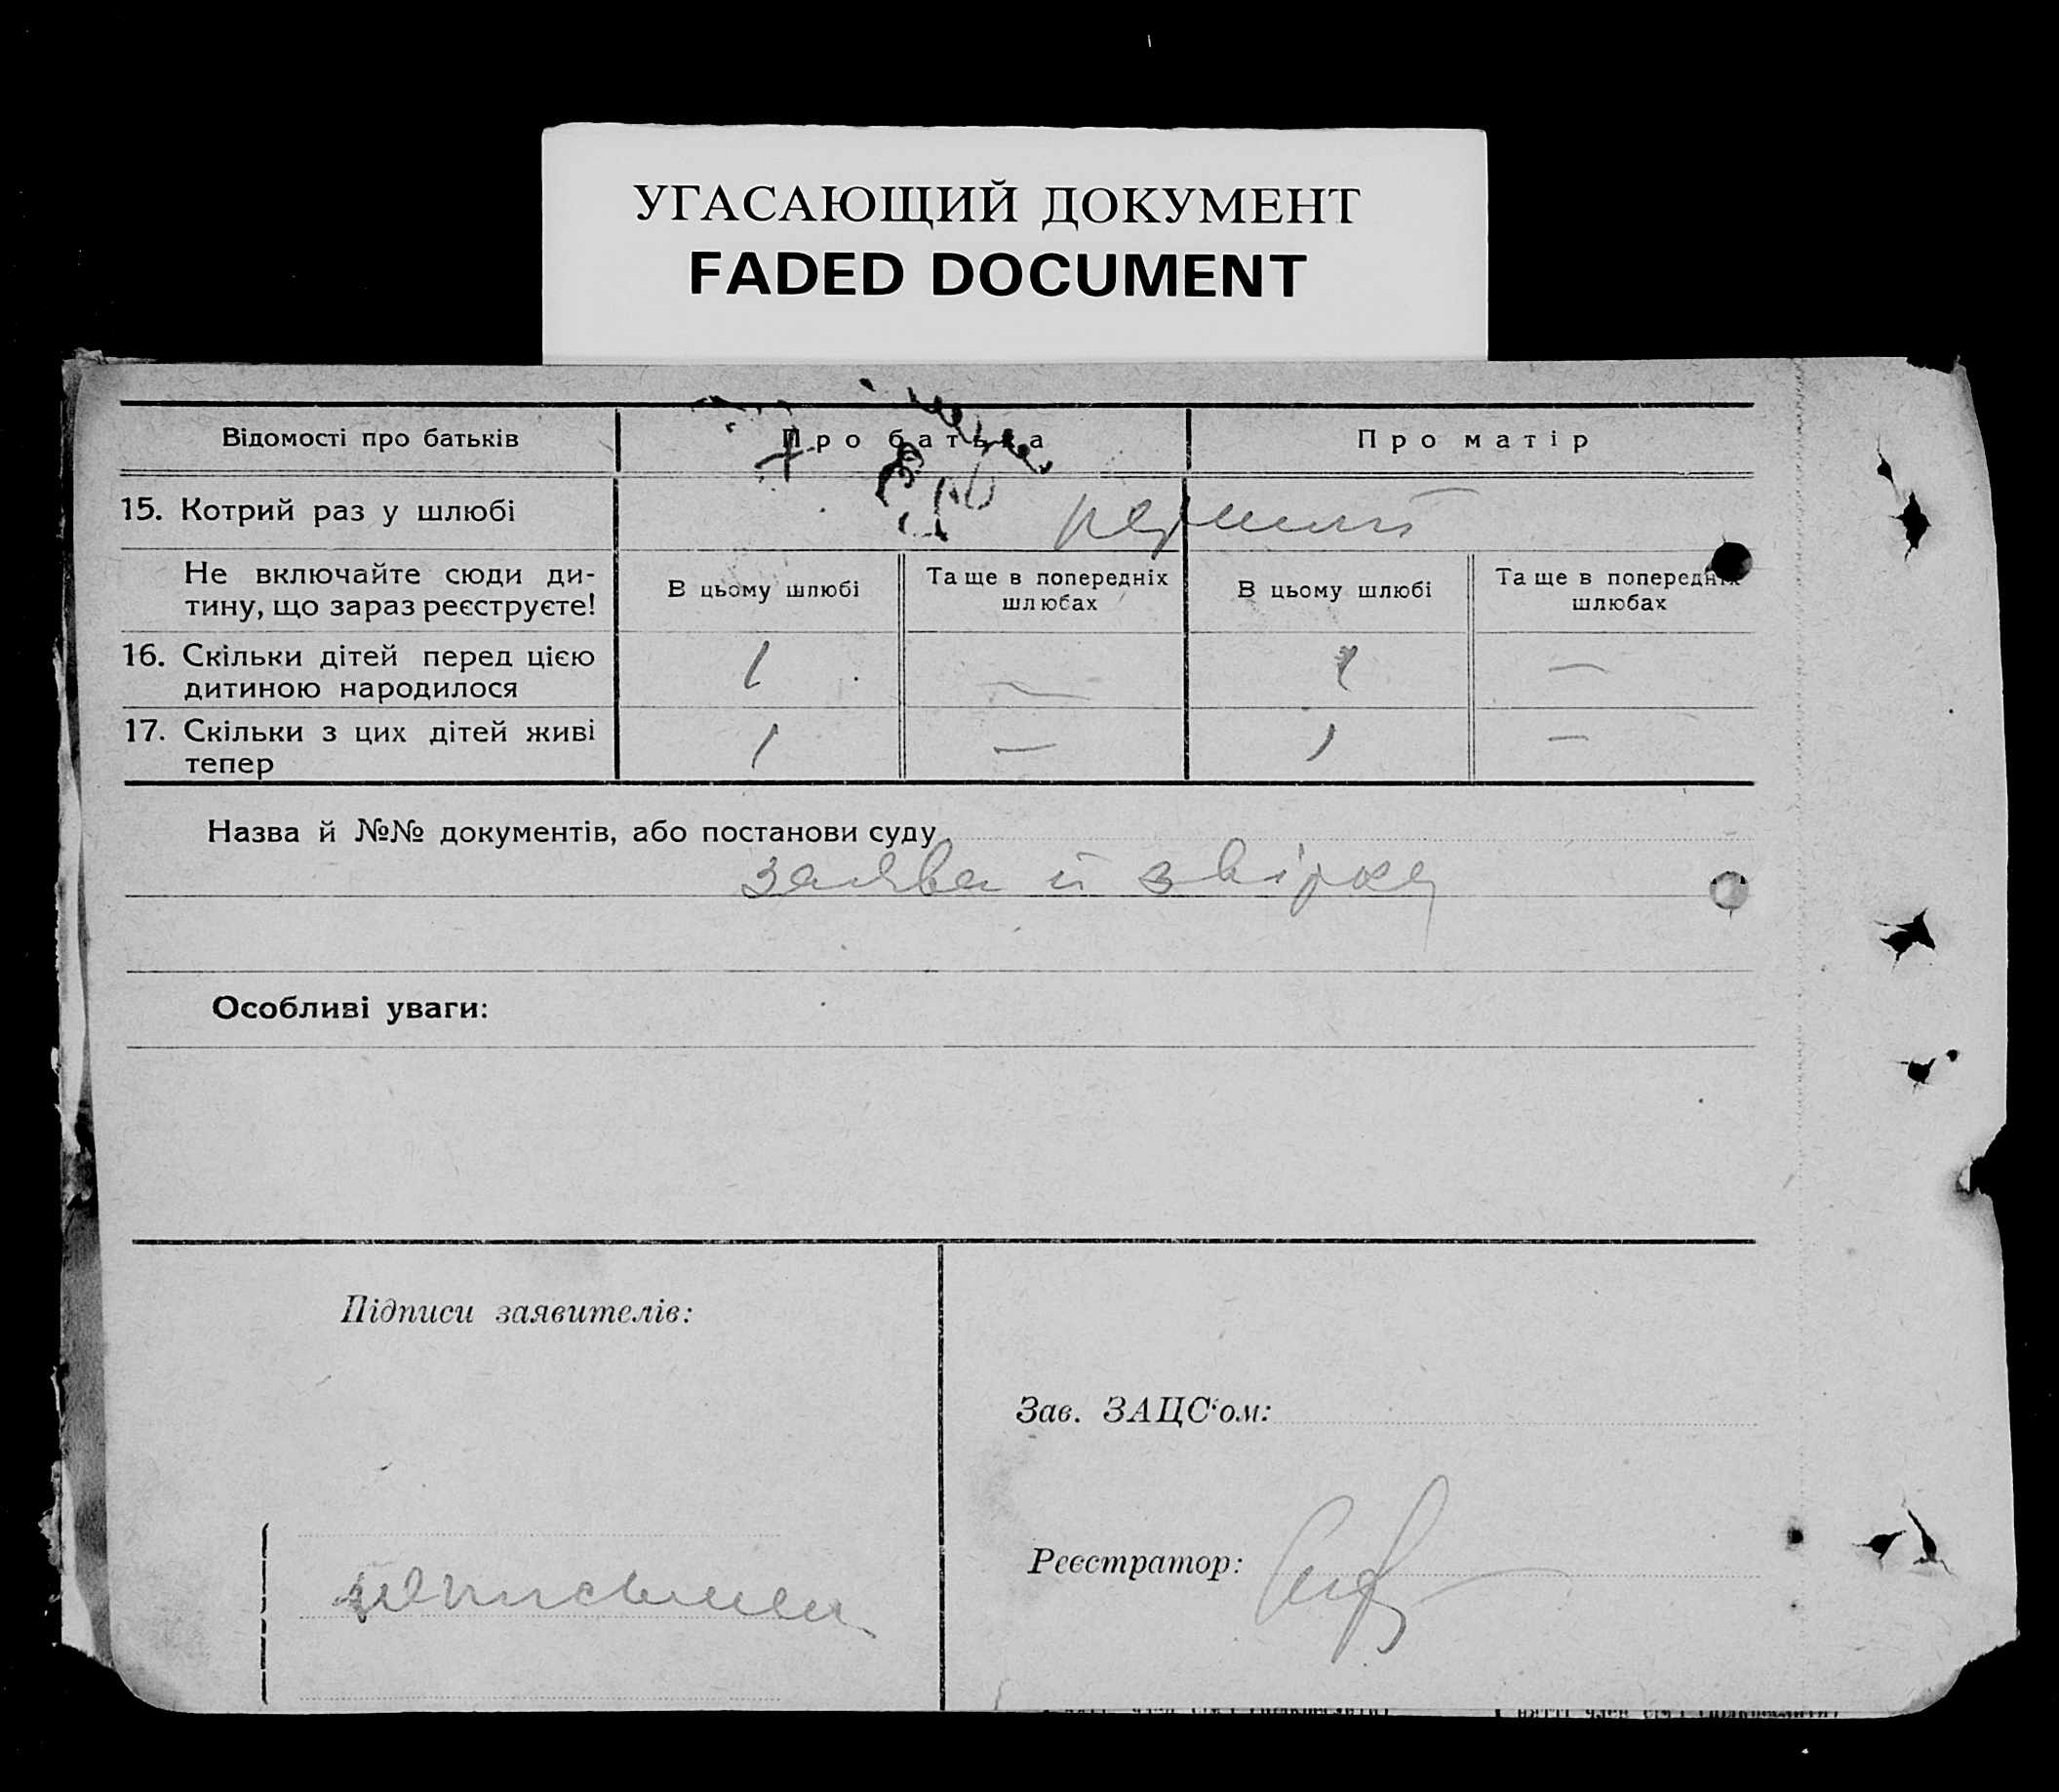 УГАСАЮЩИЙ ДОКУМЕНТ
FADED DOCUMENT
Відомості про батьків
Про батька
Про матір
15. Котрий раз у шлюбі
перший
Не включайте сюди ди-
тину, що зараз реєструєте!
В цьому шлюбі
Та ще в попередніх
шлюбах
В цьому шлюбі
Та ще в попередніх
шлюбах
16. Скільки дітей перед цією
дитиною народилося
1 — 1 —
17. Скільки з цих дітей живі
тепер
1 — 1 —
Назва й №№ документів, або постанови суду
заява й звірка
Особливі уваги:
Підписи заявителів:
Зав. ЗАЦС‘ом:
Реєстратор:
неписьмен